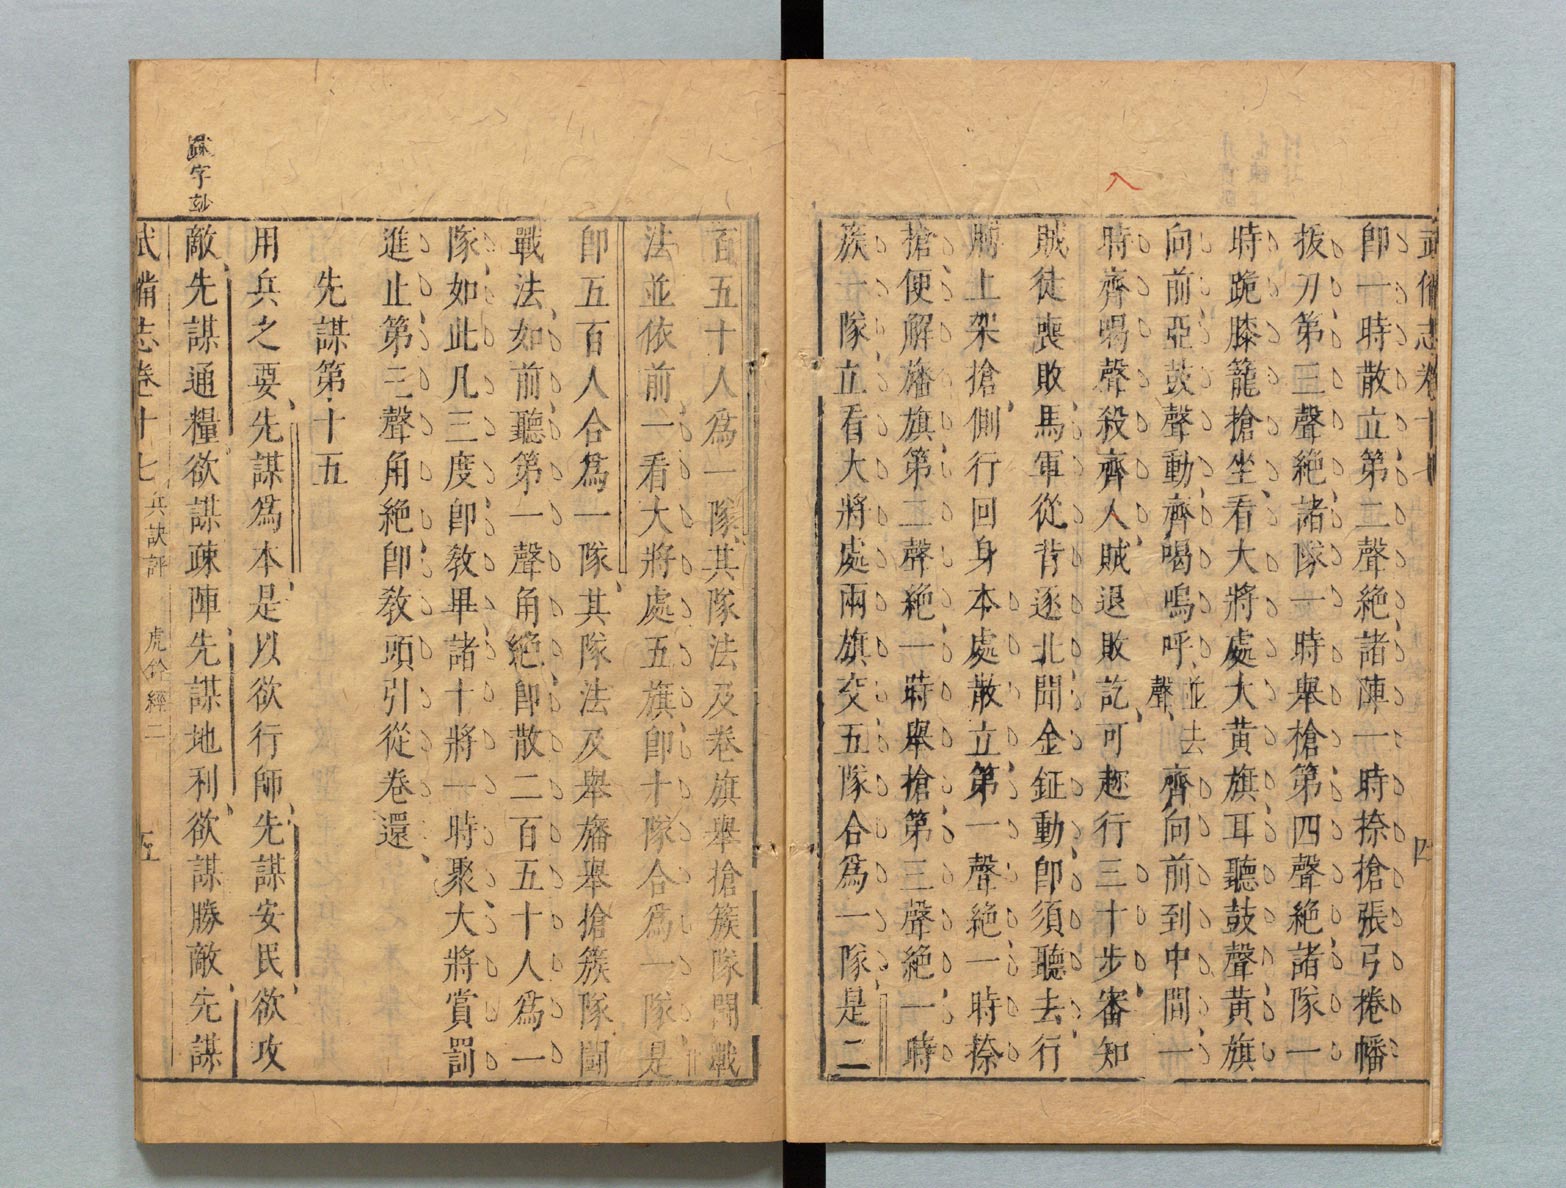 武備志卷十七 四
卽一時散立第二聲絶諸陣一時捺搶張弓捲幡
拔刀第三聲絶諸隊一時舉槍第四聲絶諸隊一
時跪膝籠搶坐看大將處大黃旗耳聽鼓聲黃旗
向前亞鼓聲動齊喝嗚呼並去聲齊向前到中間一
時齊喝聲殺齊入賊退敗訖可趂行三十步審知
賊徒喪敗馬軍從背逐北聞金鉦動卽須聽去行
膊上架搶側行回身本處散立第一聲絶一時捺
搶便解旛旗第二聲絶一時舉搶第三聲絶一時
簇一隊立看大將處兩旗交五隊合爲一隊是二
百五十人爲一隊其隊法及卷旗舉搶簇隊鬭戰
法並依前一看大將處五旗卽十隊合爲一隊是
卽五百人合爲一隊其隊法及舉旛舉搶簇隊鬭
戰法如前聽第一聲角絶卽散二百五十人爲一
隊如此凡三度卽教畢諸十將一時聚大將賞罰
進止第三聲角絶卽教頭引從卷還
先謀第十五
用兵之要先謀爲本是以欲行師先謀安民欲攻
敵先謀通糧欲謀疎陣先謀地利欲謀勝敵先謀
武備志卷十七 兵訣評 虎鈐經二 五
字妙
入